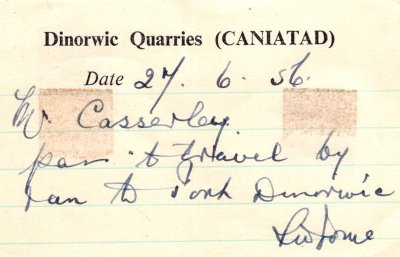 Dinorwic Quarries (CANIATAD)
Date 27. 6. 56.
Mr Casserley
pass to travel by
tran to Port Dinorwic